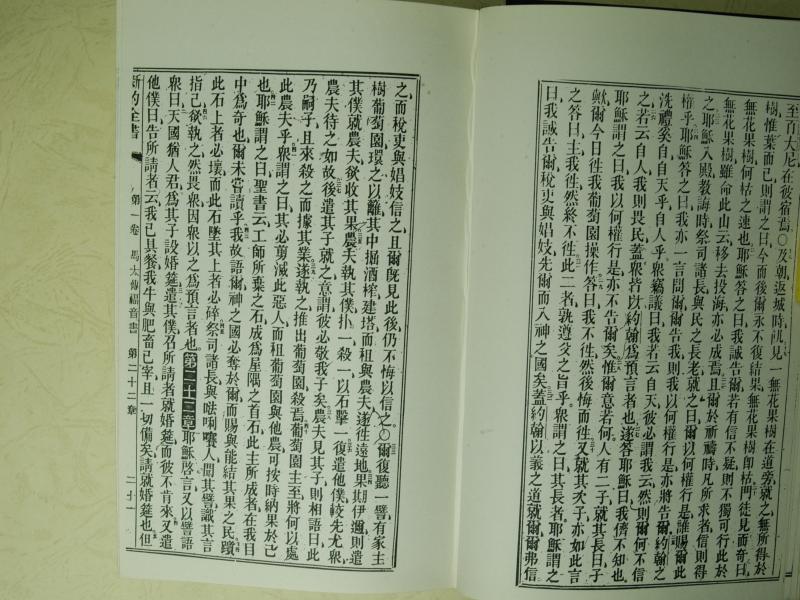 至百大尼在彼宿焉〇及朝返城時飢見一無花果樹在道旁就之無所得於
樹惟葉而已則謂之曰今而後爾永不復結果無花果樹卽枯門徒見而奇曰
無花果樹何枯之速也耶穌答之曰我誠告爾若有信不疑則不獨可行此於
無花果樹雖命此山云移去投海亦必成焉且爾於祈禱時凡所求者信則得
之耶穌入殿教誨時祭司諸長與民之長老就之曰爾以何權行是誰賜爾此
權乎耶穌答之曰我亦一言問爾爾告我則我以何權行是亦將告爾約翰之
洗禮奚自自天乎自人乎衆竊議曰我若云自天彼必謂我云然則爾何不信
之若云自人我則畏民蓋衆皆以約翰爲預言者也遂答耶穌曰我儕不知也
耶穌謂之曰我以何權行是亦不告爾矣惟爾意若何人有二子就其長曰子
歟爾今日往我葡萄園操作答曰我不往然後悔而往又就其次子亦如此言
之答曰主我往然終不往此二者孰遵父之旨乎衆謂之曰其長者耶穌謂之
曰我誠告爾稅吏與娼妓先爾而入神之國矣蓋約翰以義之道就爾爾弗信
之而稅吏與娼妓信之且爾旣見此後仍不悔以信之〇爾復聽一譬有家主
樹葡萄園環之以籬其中掘酒榨建塔而租與農夫遂往遠地果期伊邇則遣
其僕就農夫欲收其果農夫執其僕扑一殺一以石擊一復遣他僕較先尤衆
農夫待之如故後遣其子就之意謂彼必敬我子矣農夫見其子則相語曰此
乃嗣子且來殺之而據其業遂執之推出葡萄園殺焉葡萄園主至將何以處
此農夫乎衆謂之曰其必剪滅此惡人而租葡萄園與他農可按時納果於己
也耶穌謂之曰聖書云工師所棄之石成爲屋隅之首石此主所成者在我目
中爲奇也爾未嘗讀乎我故語爾神之國必奪於爾而賜與能結其果之民躓
此石上者必壞而此石墜其上者必碎祭司諸長與𠵽唎㘔人聞其譬識其言
指己欲執之然畏衆因衆以之爲預言者也第二十二章耶穌啓言又以譬語
衆曰天國猶人君爲其子設婚筵遣其僕召所請者就婚筵而彼不肯來又遣
他僕曰告所請者云我已具餐我牛與肥畜已宰且一切備矣請就婚筵也但
新約全書 第一卷 馬太傳福音書 第二十二章 二十一